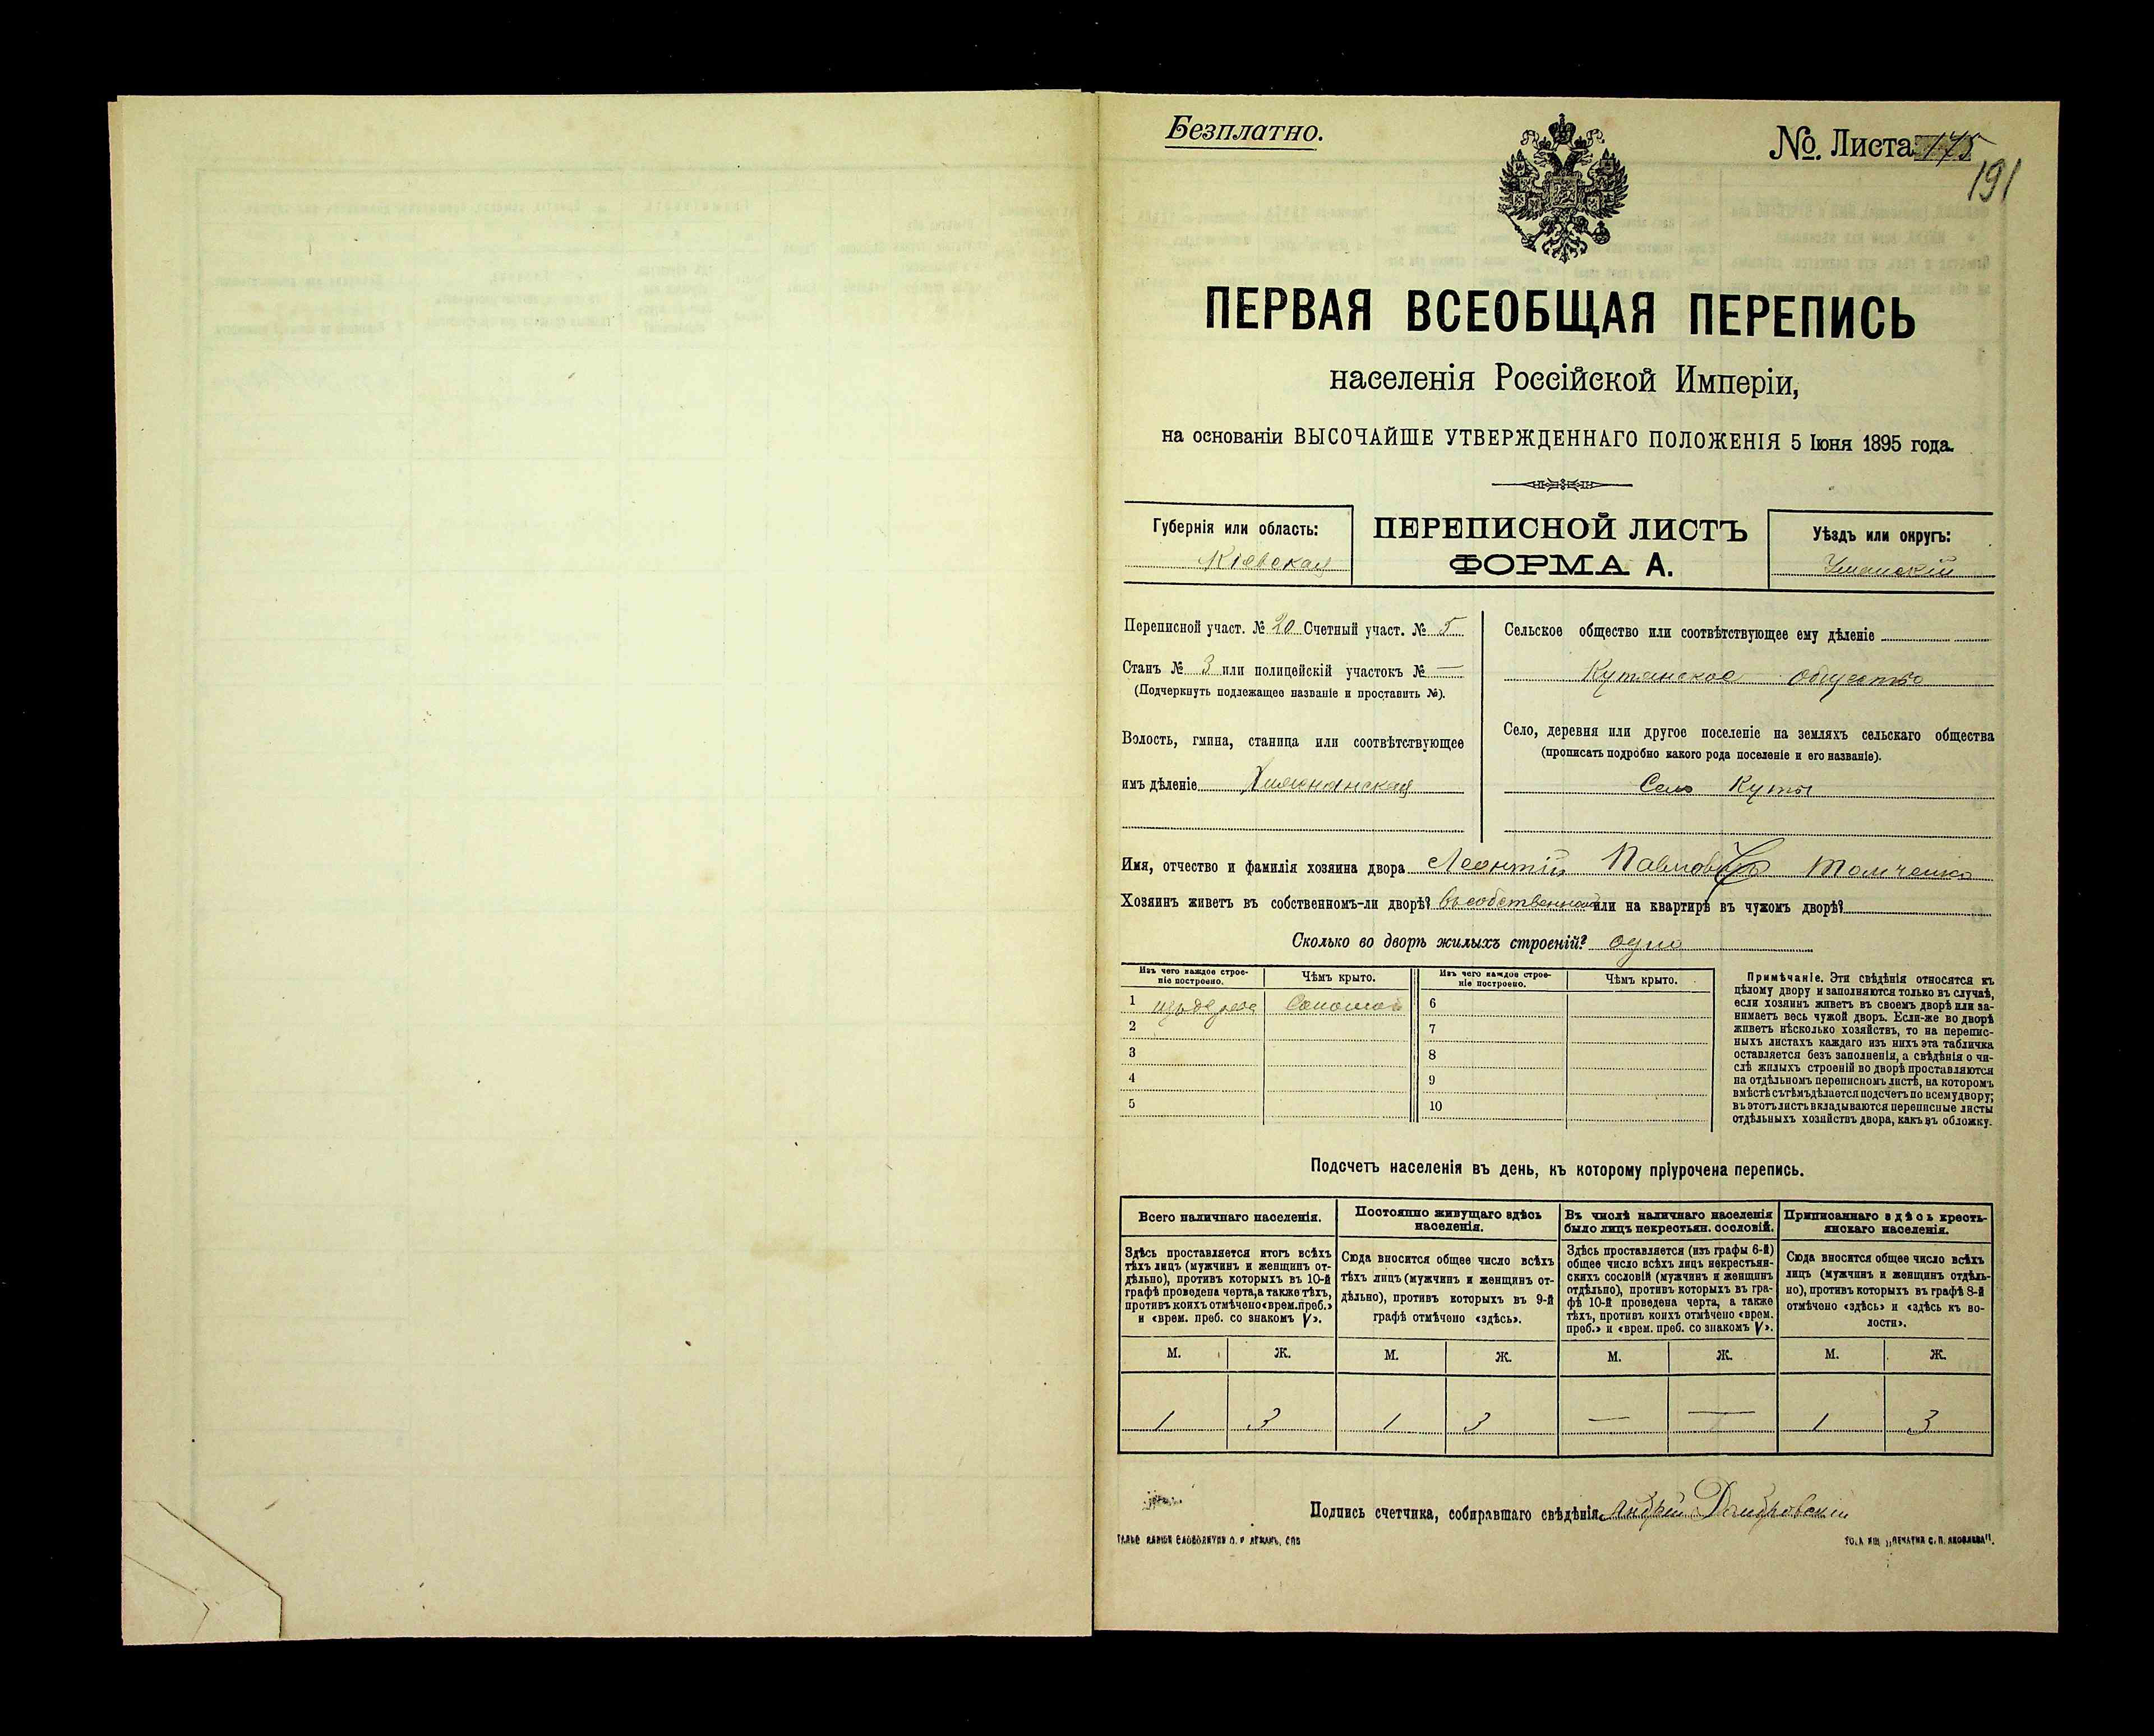 Безплатно.
№. Листа 175
191
ПЕРВАЯ ВСЕОБЩАЯ ПЕРЕПИСЬ
населенія Россійской Имперіи,
на основаніи ВЫСОЧАЙШЕ УТВЕРЖДЕННАГО ПОЛОЖЕНІЯ 5 Іюня 1895 года.
Губернія или область:
Кіевская
ПЕРЕПИСНОЙ ЛИСТЪ
ФОРМА А.
Уѣздъ или округъ:
Уманскій
Переписной участ. № 20 Счетный участ. № 5
Станъ № 3 или полицейскій участокъ № —
(Подчеркнуть подлежащее названіе и проставить №).
Волость, гмина, станица или соотвѣтствующее
имъ дѣленіе
Сельское общество или соотвѣтствующее ему дѣленіе
Кутянское общество
Село, деревня или другое поселеніе на земляхъ сельскаго общества
(прописать подробно какого рода поселеніе и его названіе).
Село Куты
Имя, отчество и фамилія хозяина двора Леонтій Павловъ Толмченко
Хозяинъ живетъ въ собственномъ-ли дворѣ? въ собственномъ или на квартирѣ въ чужомъ дворѣ?
Сколько во дворѣ жилыхъ строеній? одно
Изъ чего каждое строеніе построено. Чѣмъ крыто. Изъ чего каждое строеніе построено. Чѣмъ крыто.
1 изъ дерева Соломой 6
2 7
3 8
4 9
5 10
Примѣчаніе. Эти свѣдѣнія относятся къ
цѣлому двору и заполняются только въ случаѣ,
если хозяинъ живетъ въ своемъ дворѣ или за-
нимаетъ весь чужой дворъ. Если-же во дворѣ
живетъ нѣсколько хозяйствъ, то на перепис-
ныхъ листахъ каждаго изъ нихъ эта табличка
оставляется безъ заполненія, а свѣдѣнія о чи-
слѣ жилыхъ строеній во дворѣ проставляются
на отдѣльномъ переписномъ листѣ, на которомъ
вмѣстѣ съ тѣмъ дѣлается подсчетъ по всему двору;
въ этотъ листъ вкладываются переписные листы
отдѣльныхъ хозяйствъ двора, какъ въ обложку.
Подсчетъ населенія въ день, къ которому пріурочена перепись.
Всего наличнаго населенія.
Здѣсь проставляется итогъ всѣхъ
тѣхъ лицъ (мужчинъ и женщинъ от-
дѣльно), противъ которыхъ въ 10-й
графѣ проведена черта, а также тѣхъ,
противъ коихъ отмѣчено «врем. преб.»
и «врем. преб. со знакомъ V».
Постоянно живущаго здѣсь
населенія.
Сюда вносится общее число всѣхъ
тѣхъ лицъ (мужчинъ и женщинъ от-
дѣльно), противъ которыхъ въ 9-й
графѣ отмѣчено «здѣсь».
Въ числѣ наличнаго населенія
было лицъ некрестьян. сословій.
Здѣсь проставляется (изъ графы 6-й)
общее число всѣхъ лицъ некрестьян-
скихъ сословій (мужчинъ и женщинъ
отдѣльно), противъ которыхъ въ гра-
фѣ 10-й проведена черта, а также
тѣхъ, противъ коихъ отмѣчено «врем.
преб.» и «врем. преб. со знакомъ V».
Приписаннаго здѣсь кресть-
янскаго населенія.
Сюда вносится общее число всѣхъ
лицъ (мужчинъ и женщинъ отдѣль-
но), противъ которыхъ въ графѣ 8-й
отмѣчено «здѣсь» и «здѣсь къ во-
лости».
М. Ж. М. Ж. М. Ж. М. Ж.
1 3 1 3 — — 1 3
Подпись счетчика, собиравшаго свѣдѣнія Андрій Домбровскій